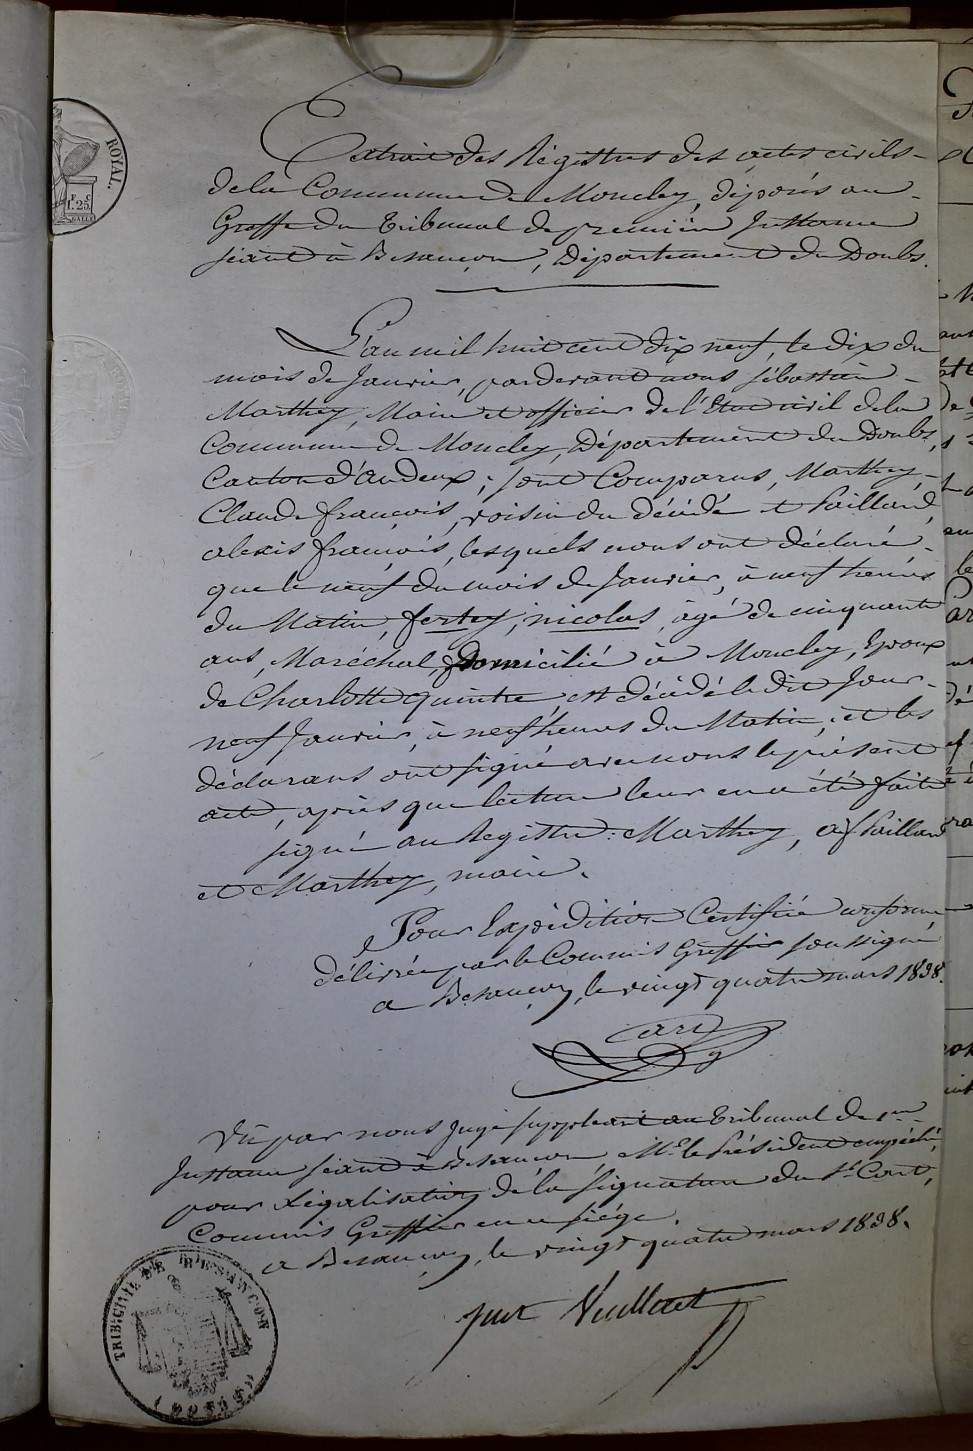 ROYAL.
1.F 25.C
Extrait des Régistres des actes civils
de la Commune de Moncley, déposés au
Greffe du Tribunal de premiere Instance
séant à Besançon, Département du Doubs.
L'an mil huit cent dix neuf, le dix du
mois de Janvier, pardevant nous Sébastien
Marthey, Maire et officier de l'Etat civil de la
Commune de Moncley, Département du Doubs,
Canton d'Audeux; sont Comparus, Marthey
Claude françois, voisin du décédé et Paillard
alexis françois, lesquels nous ont déclaré
que le neuf du mois de Janvier, à neuf heures
du Matin, fertey, nicolas, âgé de cinquante
ans, Maréchal, Domicilié à Moncley, Epoux
de Charlotte quintre, est décédé le dit Jour
neuf Janvier, à neuf heures du Matin, et les
déclarans ont signé avec nous le présent
acte, après que lecture leur en a été faite
signé au Registre: Marthey, af Paillard
et Marthey, maire.
Pour Expédition Certifiée conforme
délivrée par le Commis Greffier soussigné
a Besançon, le vingt quatre mars 1838.
Vû par nous Juge suppléant au Tribunal de 1ere
Instance séant à Besançon Mr. le Président empêché,
pour Légalisation de la signature du Sr.
Commis Greffier en ce siége.
a Besançon, le vingt quatre mars 1838.
Just Vuilleret
TRIB. CIVIL DE BESANÇON
(DOUBS)